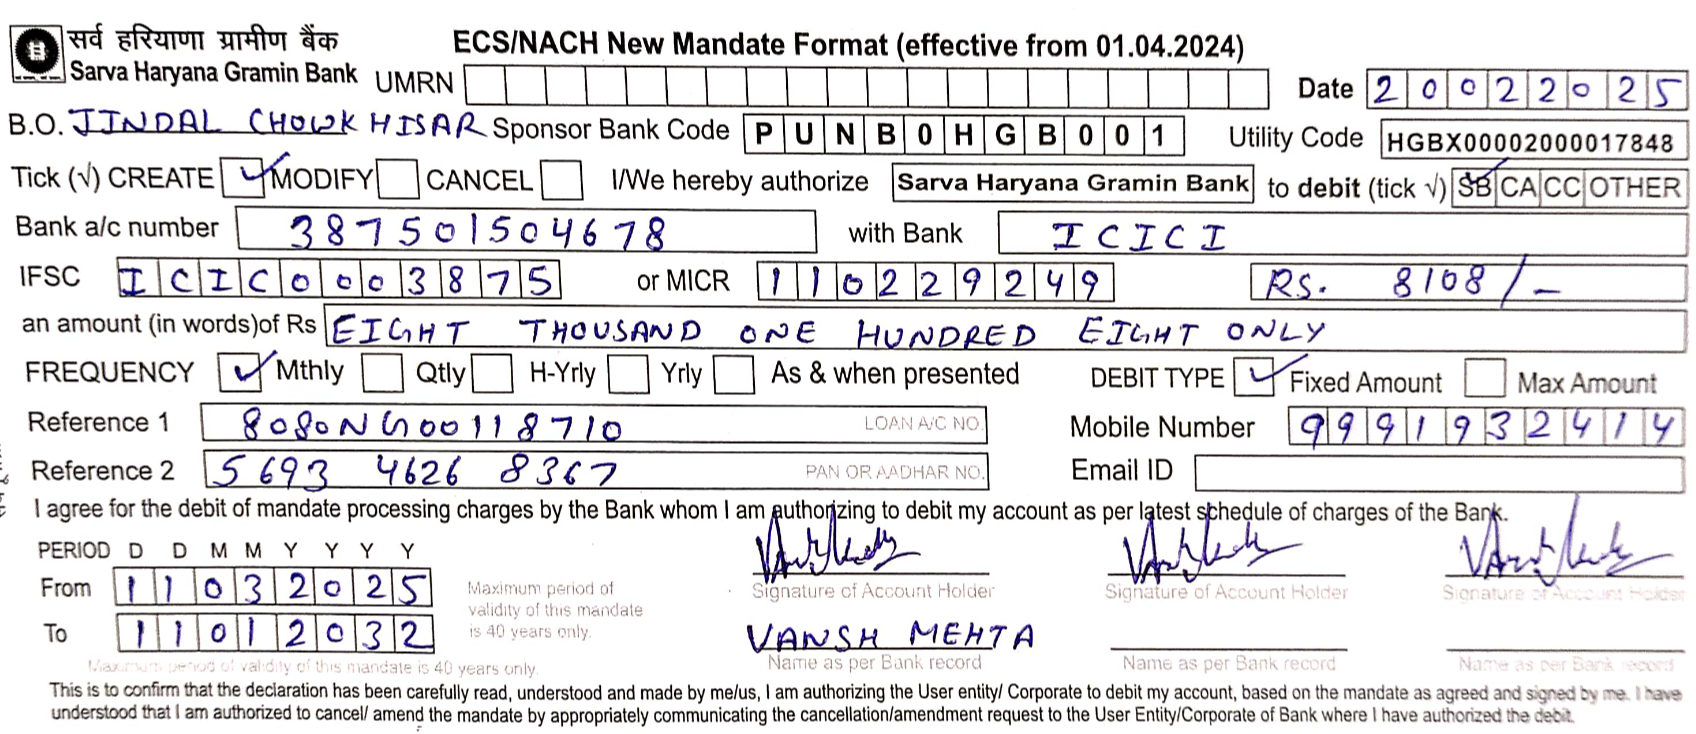 सर्व हरियाणा ग्रामीण बैंक
Sarva Haryana Gramin Bank
ECS/NACH New Mandate Format (effective from 01.04.2024)
UMRN Date 20022025
B.O. JINDAL CHOWK HISAR Sponsor Bank Code PUNB0HGB001 Utility Code HGBX00002000017848
Tick (√) CREATE ✓ MODIFY CANCEL I/We hereby authorize Sarva Haryana Gramin Bank to debit (tick √) SB CA CC OTHER
Bank a/c number 387501504678 with Bank ICICI
IFSC ICIC0003875 or MICR 110229249 RS. 8108/-
an amount (in words)of Rs EIGHT THOUSAND ONE HUNDRED EIGHT ONLY
FREQUENCY ✓ Mthly Qtly H-Yrly Yrly As & when presented DEBIT TYPE ✓ Fixed Amount Max Amount
Reference 1 8080NG00118710 LOAN A/C NO. Mobile Number 9991932414
Reference 2 5693 4626 8367 PAN OR AADHAR NO. Email ID
I agree for the debit of mandate processing charges by the Bank whom I am authorizing to debit my account as per latest schedule of charges of the Bank.
PERIOD D D M M Y Y Y Y
From 11032025 Maximum period of validity of this mandate is 40 years only.
To 11012032
Signature of Account Holder Signature of Account Holder Signature of Account Holder
VANSH MEHTA
Maximum period of validity of this mandate is 40 years only. Name as per Bank record Name as per Bank record Name as per Bank record
This is to confirm that the declaration has been carefully read, understood and made by me/us, I am authorizing the User entity/ Corporate to debit my account, based on the mandate as agreed and signed by me. I have
understood that I am authorized to cancel/ amend the mandate by appropriately communicating the cancellation/amendment request to the User Entity/Corporate of Bank where I have authorized the debit.